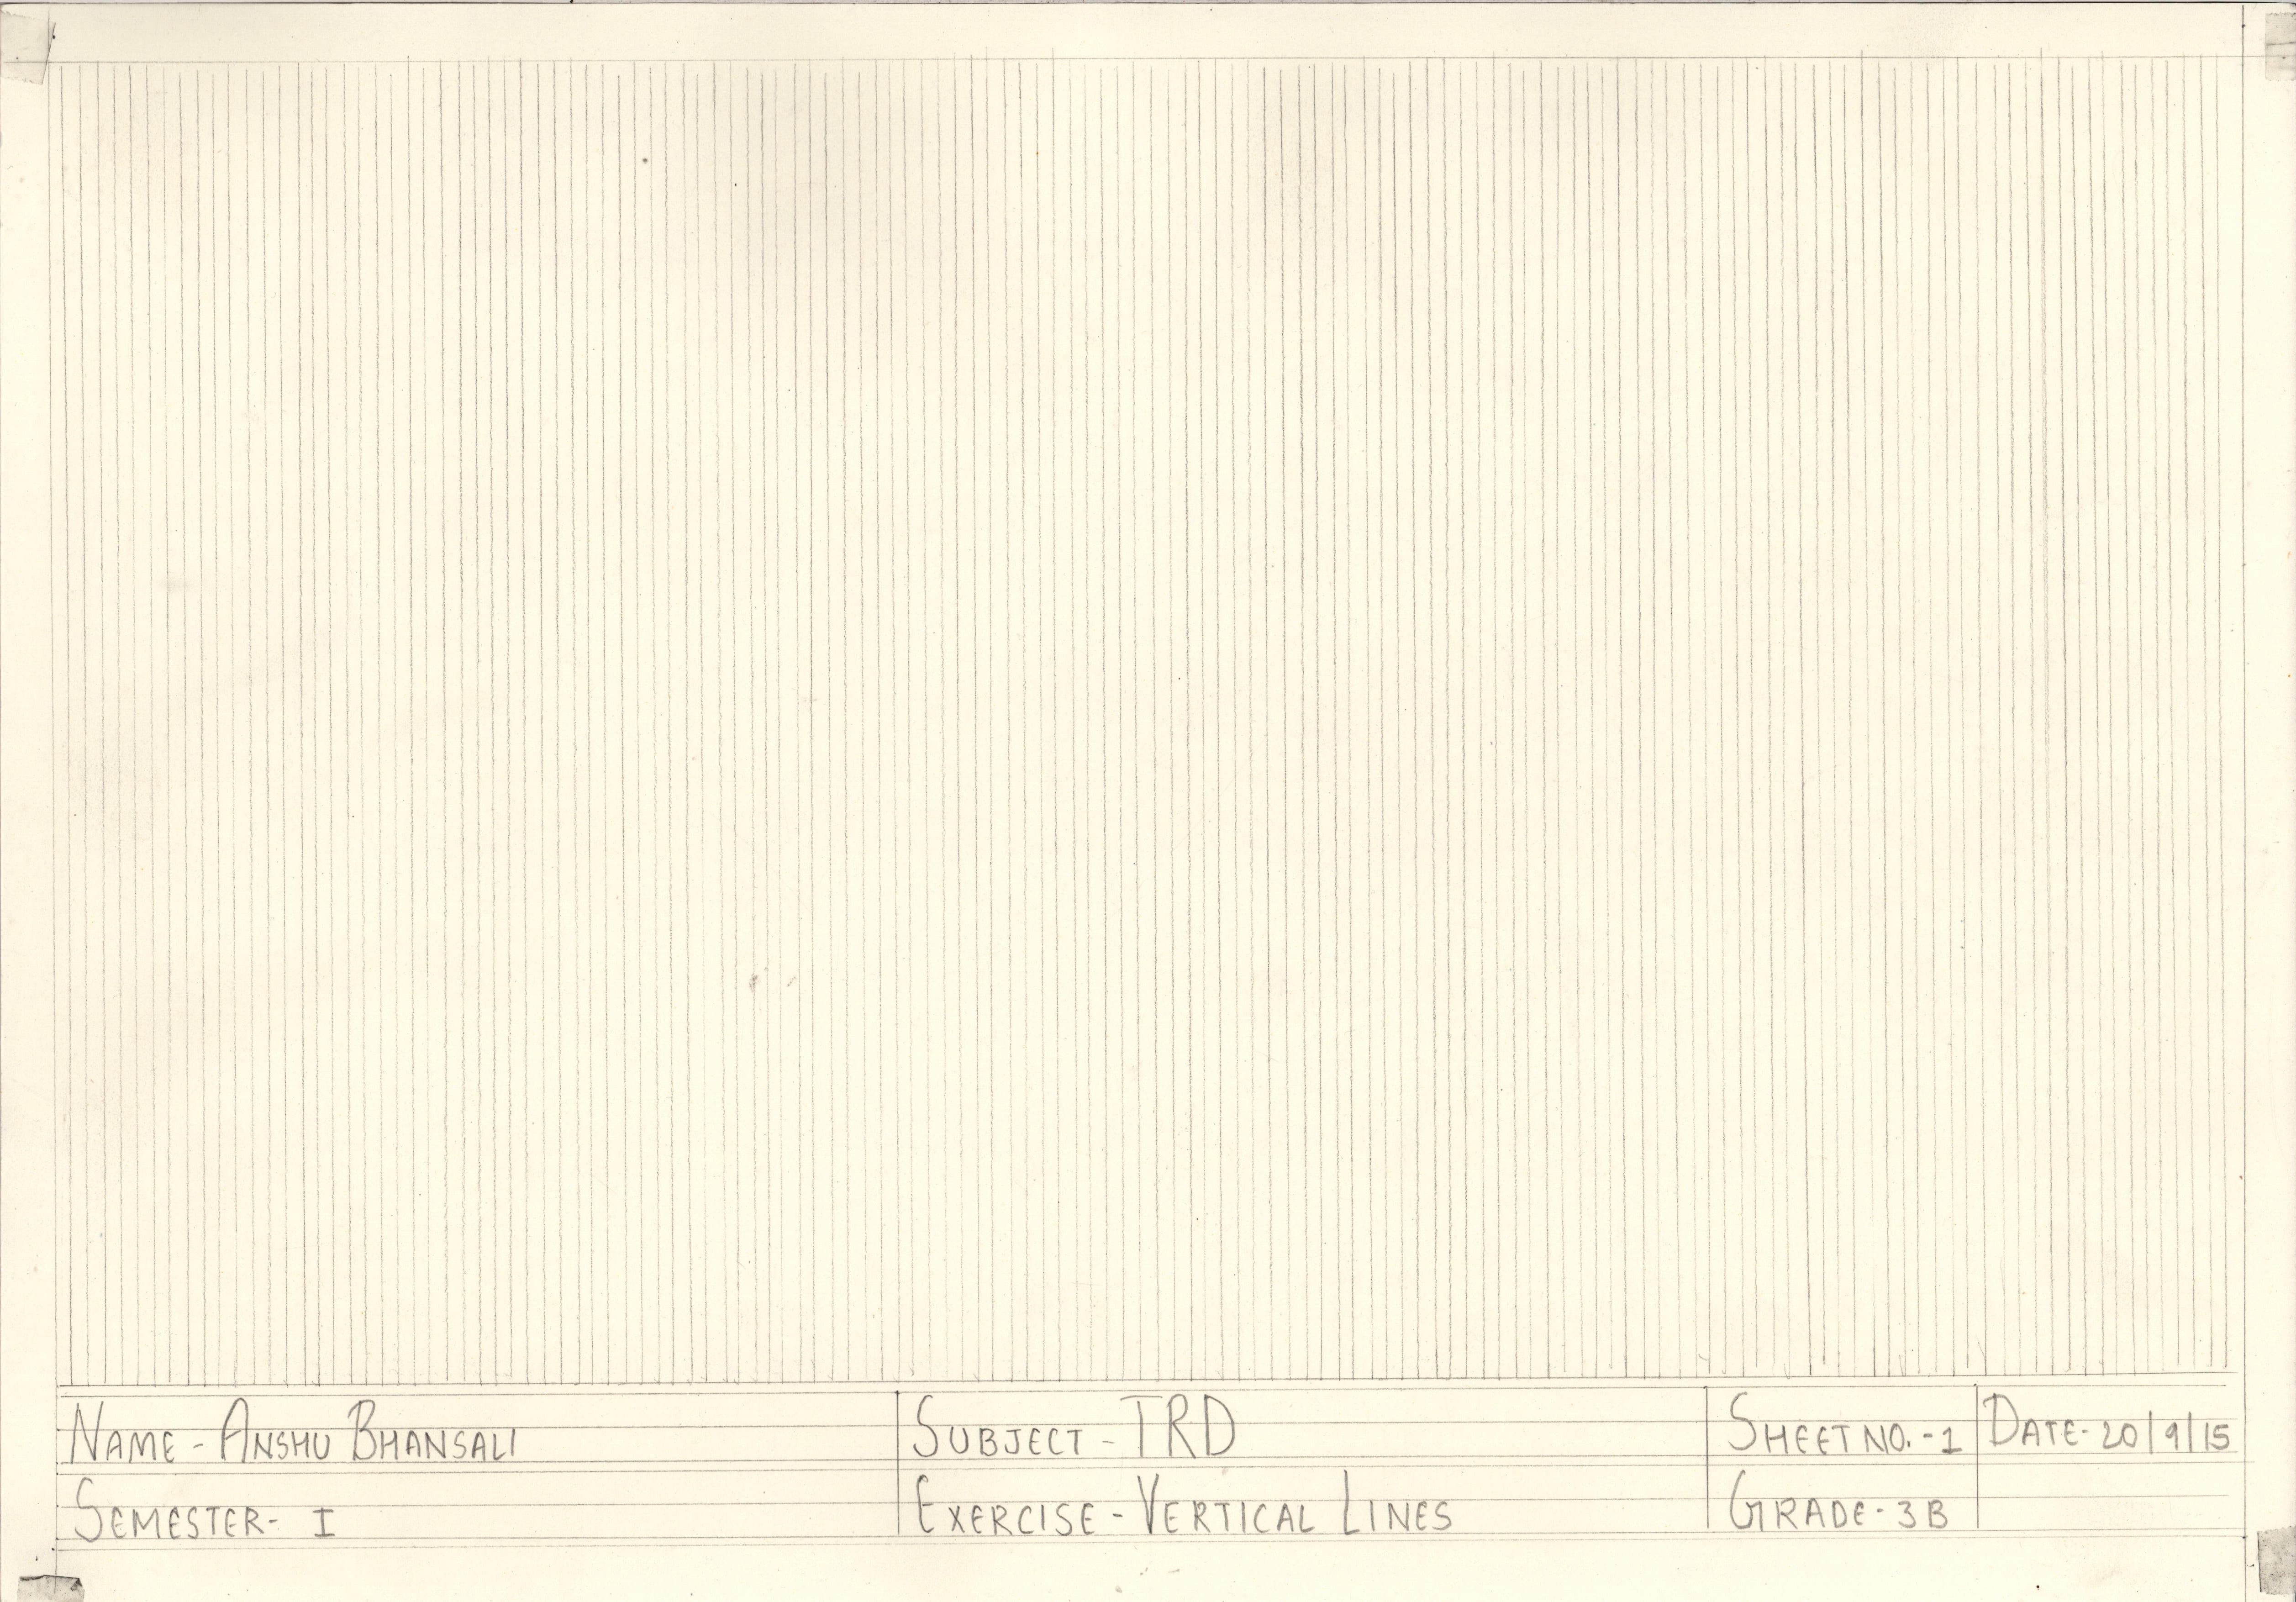 NAME - ANSHU BHANSALI
SUBJECT - TRD
SHEET NO. - 1
DATE - 20/9/15
SEMESTER - I
EXERCISE - VERTICAL LINES
GRADE - 3B